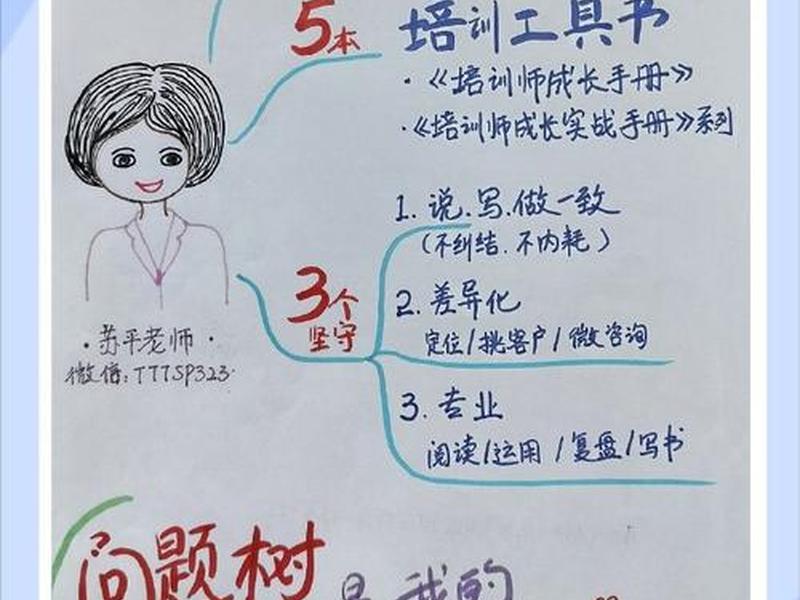 5本
培训工具书
·《培训师成长手册》
·《培训师成长实战手册》系列
3个
坚守
1. 说.写.做一致
(不纠结.不内耗)
2. 差异化
定位/挑客户/微咨询
3. 专业
阅读/运用/复盘/写书
·苏平老师·
微信:TTTSP323
问题树
是我的